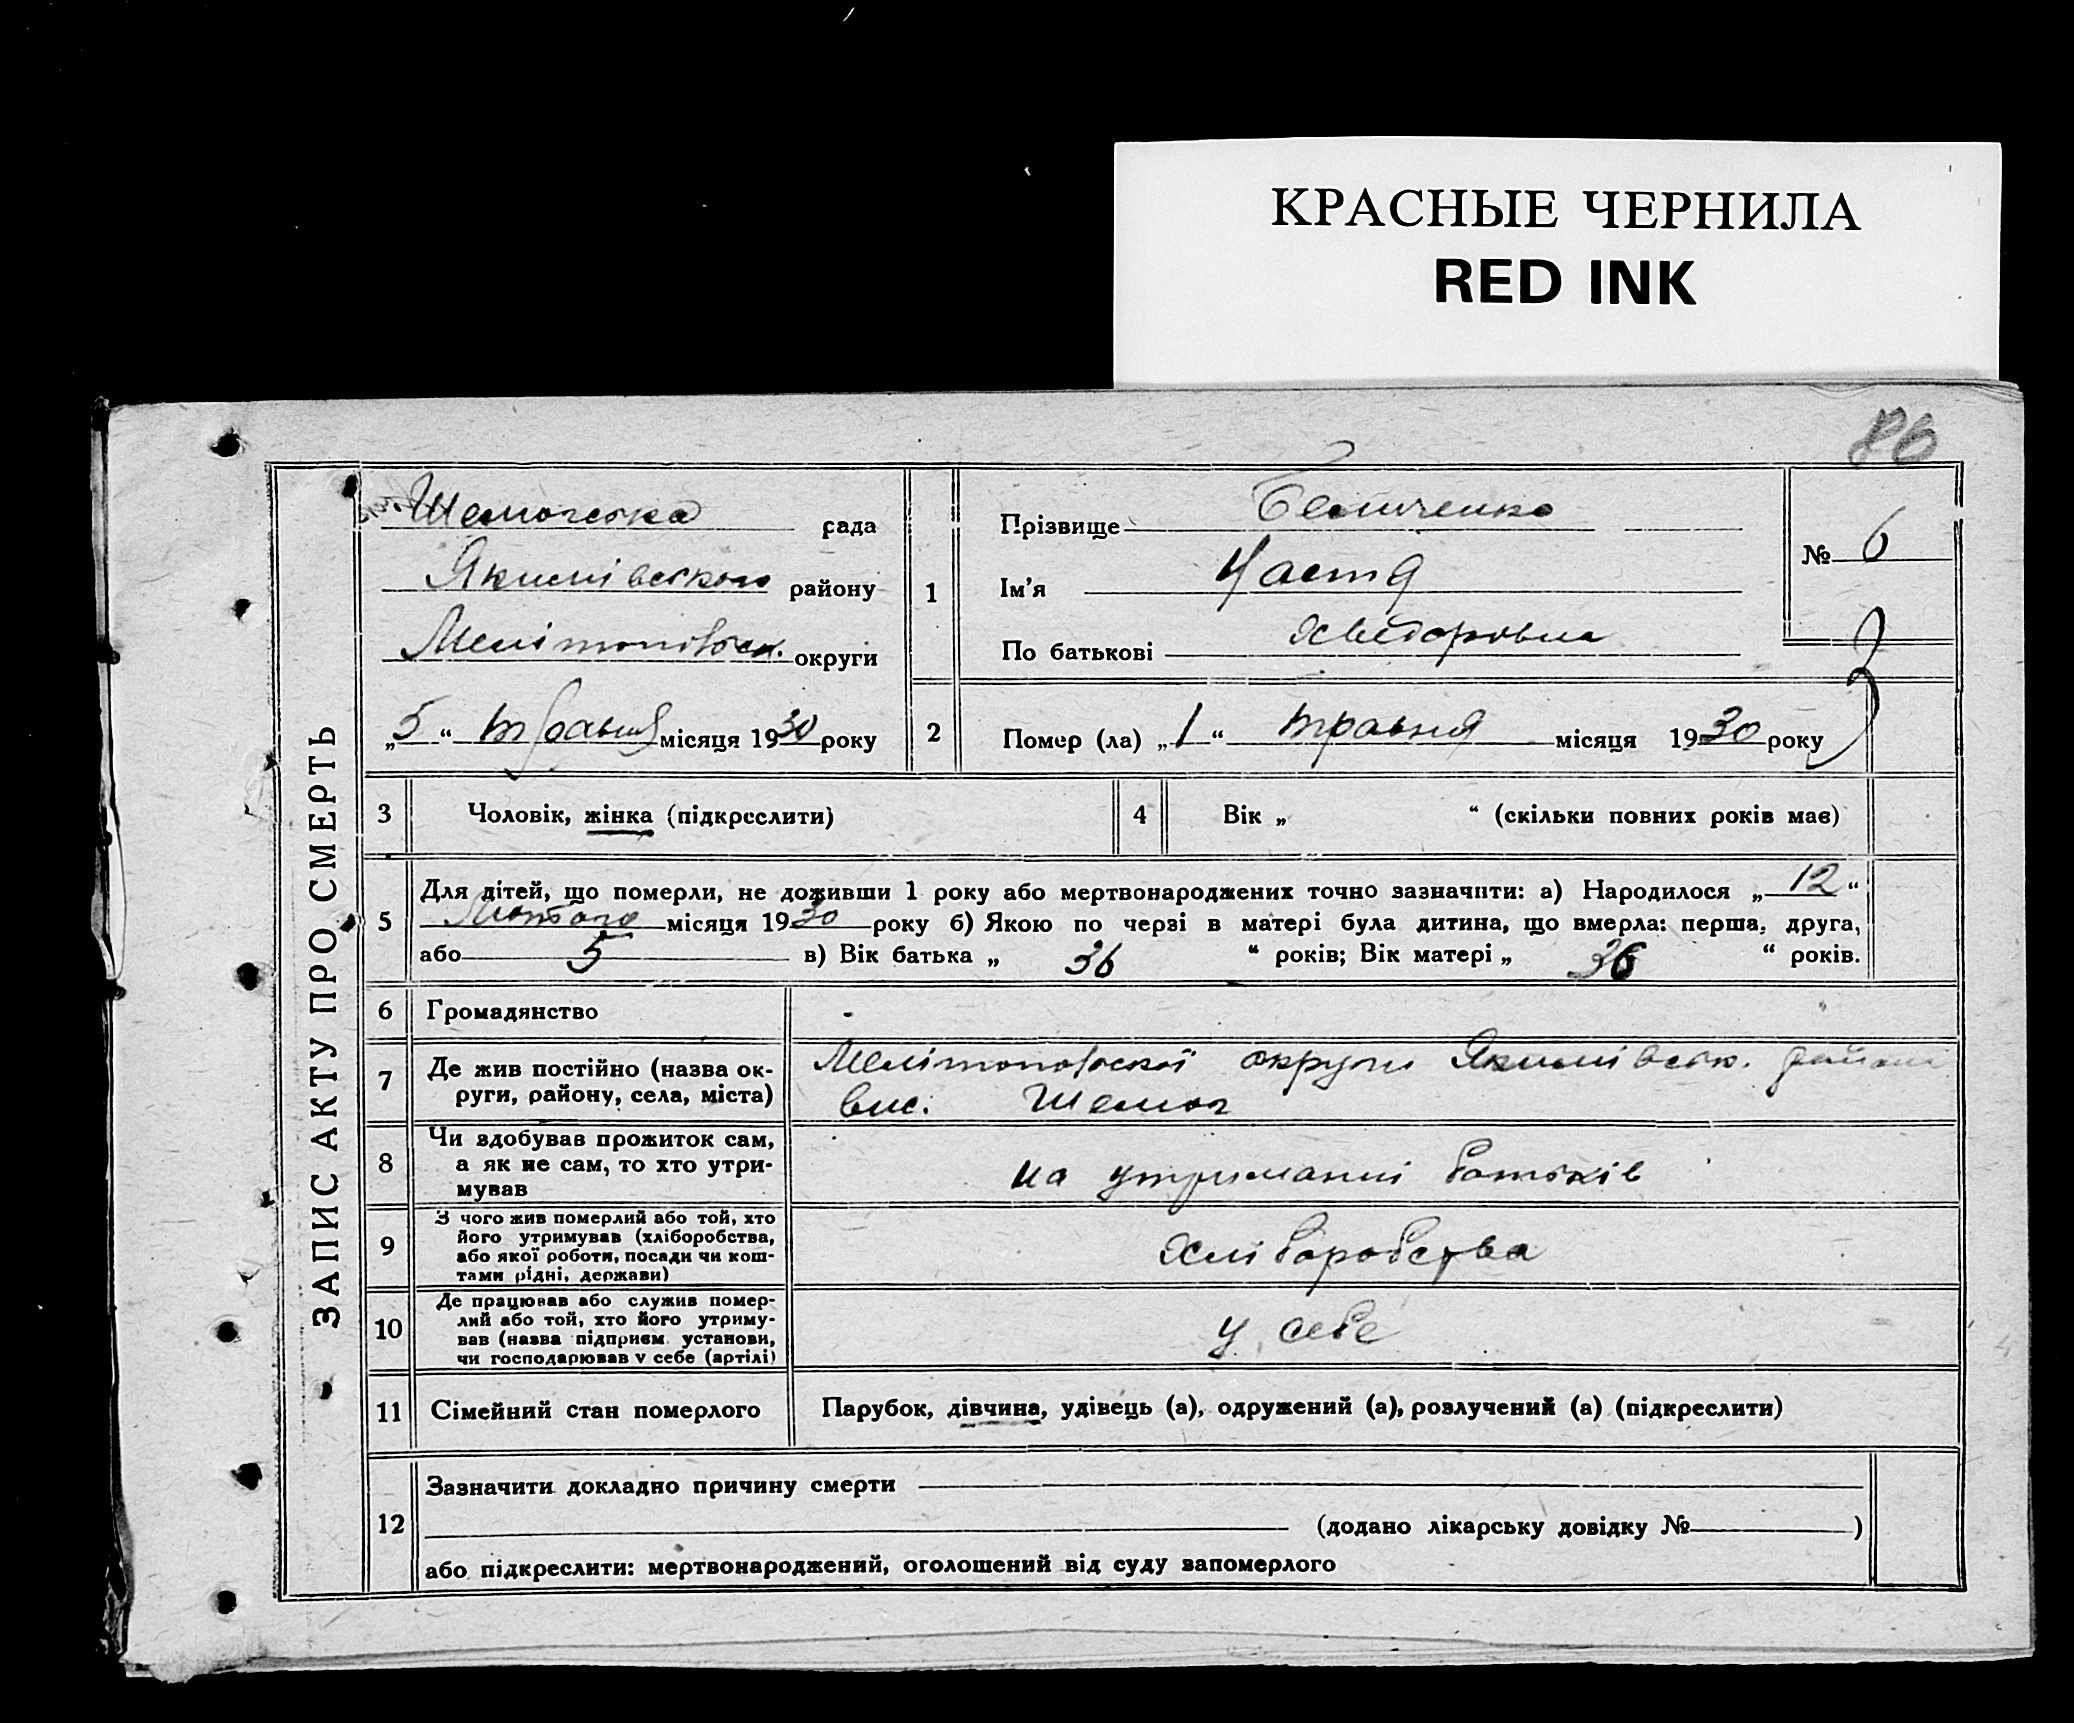 КРАСНЫЕ ЧЕРНИЛА
RED INK
86
ЗАПИС АКТУ ПРО СМЕРТЬ
рада
Якимівського району
Мелітопольськ. округи
„5“ травня місяця 1930 року
1
Прізвище
Ім'я Настя
По батькові Хведоровна
№ 6
2
Помер (ла) „1“ травня місяця 1930 року
3 Чоловік, жінка (підкреслити)
4 Вік „ “ (скільки повних років має)
5 Для дітей, що померли, не доживши 1 року або мертвонароджених точно зазначити: а) Народилося „12“
Лютого місяця 1930 року б) Якою по черзі в матері була дитина, що вмерла: перша, друга,
або 5 в) Вік батька „ 36 “ років; Вік матері „ 36 “ років.
6 Громадянство -
7 Де жив постійно (назва ок-
руги, району, села, міста)
Мелітопольської округи Якимівськ. району
вис.
8 Чи здобував прожиток сам,
а як не сам, то хто утри-
мував
на утриманні батьків
9 З чого жив померлий або той, хто
його утримував (хліборобства,
або якої роботи, посади чи кош-
тами рідні, держави)
Хліборобства
10 Де працював або служив помер-
лий або той, хто його утриму-
вав (назва підприєм. установи,
чи господарював у себе (артілі)
у себе
11 Сімейний стан померлого
Парубок, дівчина, удівець (а), одружений (а), розлучений (а) (підкреслити)
12 Зазначити докладно причину смерти
(додано лікарську довідку № )
або підкреслити: мертвонароджений, оголошений від суду запомерлого